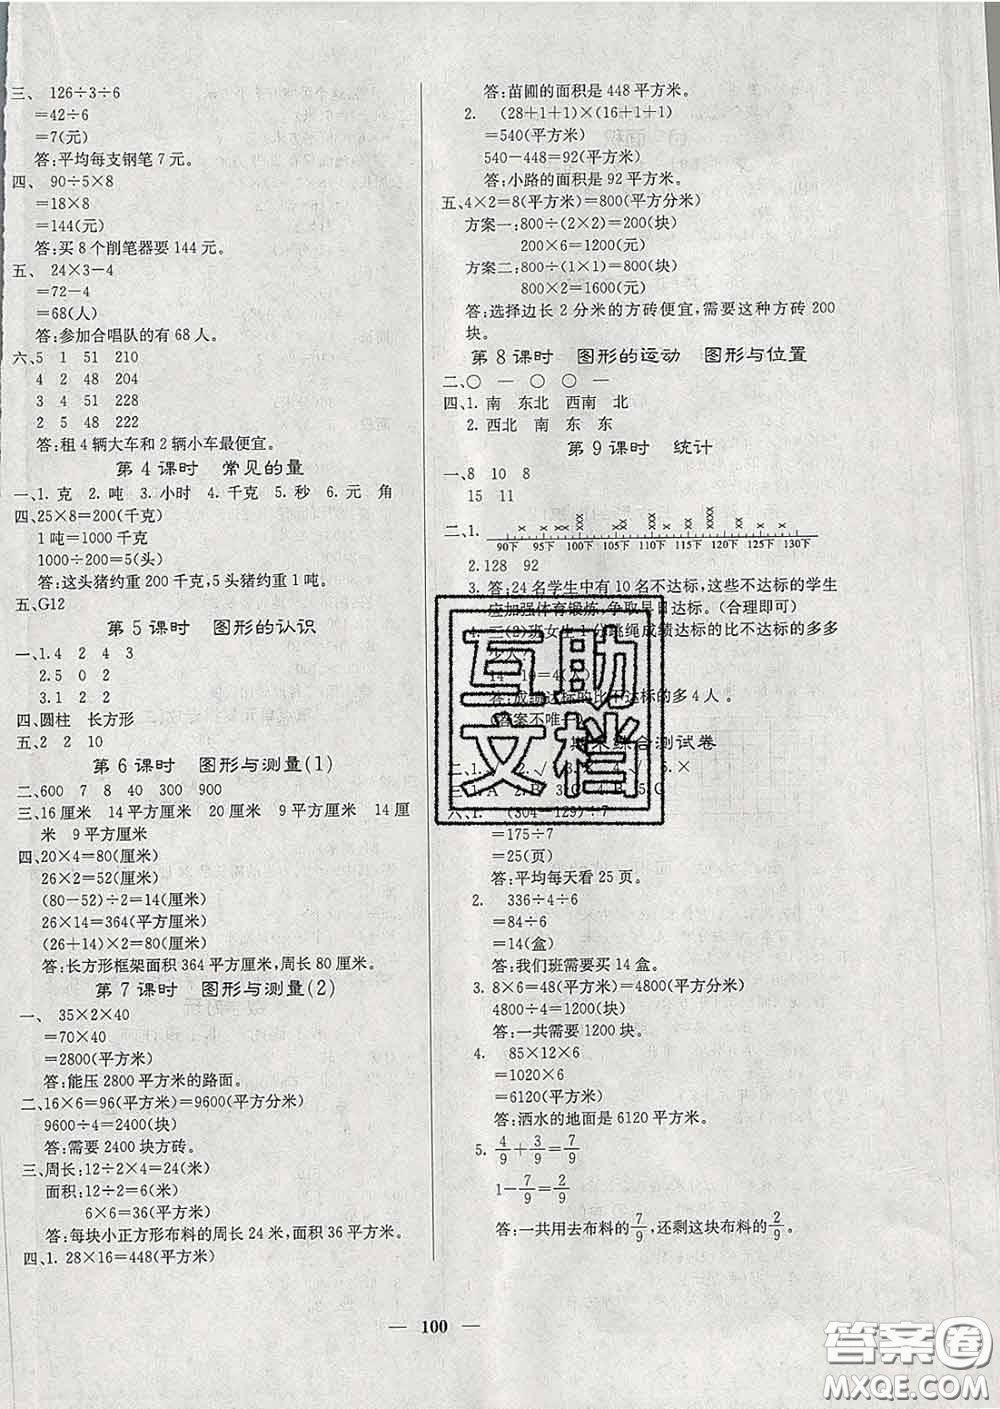 三、 126÷3÷6
=42÷6
=7(元)
答:平均每支钢笔 7 元。
四、 90÷5×8
=18×8
=144(元)
答:买 8 个削笔器要 144 元。
五、 24×3-4
=72-4
=68(人)
答:参加合唱队的有 68 人。
六、5 1 51 210
4 2 48 204
3 4 51 228
2 5 48 222
答:租 4 辆大车和 2 辆小车最便宜。
第 4 课时 常见的量
一、1. 克 2. 吨 3. 小时 4. 千克 5. 秒 6. 元 角
四、25×8=200(千克)
1 吨=1000 千克
1000÷200=5(头)
答:这头猪约重 200 千克,5 头猪约重 1 吨。
五、G12
第 5 课时 图形的认识
一、1. 4 2 4 3
2. 5 0 2
3. 1 2 2
四、圆柱 长方形
五、2 2 10
第 6 课时 图形与测量(1)
二、600 7 8 40 300 900
三、16 厘米 14 平方厘米 20 厘米 9 平方厘米 14 厘
米 9 平方厘米
四、20×4=80(厘米)
26×2=52(厘米)
(80-52)÷2=14(厘米)
26×14=364(平方厘米)
(26+14)×2=80(厘米)
答:长方形框架面积 364 平方厘米,周长 80 厘米。
第 7 课时 图形与测量(2)
一、 35×2×40
=70×40
=2800(平方米)
答:能压 2800 平方米的路面。
二、16×6=96(平方米)=9600(平方分米)
9600÷4=2400(块)
答:需要 2400 块方砖。
三、周长:12÷2×4=24(米)
面积:12÷2=6(米)
6×6=36(平方米)
答:每块小正方形布料的周长 24 米,面积 36 平方米。
四、1. 28×16=448(平方米)
答:苗圃的面积是 448 平方米。
2. (28+1+1)×(16+1+1)
=540(平方米)
540-448=92(平方米)
答:小路的面积是 92 平方米。
五、4×2=8(平方米)=800(平方分米)
方案一:800÷(2×2)=200(块)
200×6=1200(元)
方案二:800÷(1×1)=800(块)
800×2=1600(元)
答:选择边长 2 分米的方砖便宜,需要这种方砖 200
块。
第 8 课时 图形的运动 图形与位置
二、○ — ○ ○ —
四、1. 南 东北 西南 北
2. 西北 南 东 东
第 9 课时 统计
一、8 10 8
15 11
二、1.
90下 95下 100下 105下 110下 115下 120下 125下 130下
2. 128 92
3. 答:24 名学生中有 10 名不达标,这些不达标的学生
应加强体育锻炼,争取早日达标。(合理即可)
4. 三(2)班女生 1 分跳绳成绩达标的比不达标的多多
少人?
14-10=4(人)
答:成绩达标的比不达标的多 4 人。
(答案不唯一)
期末综合测试卷
二、1. 2. √ 3. 4. √ 5. ×
三、1. A 2. B 3. 4. 5. C
六、1. (304-129)÷7
=175÷7
=25(页)
答:平均每天看 25 页。
2. 336÷4÷6
=84÷6
=14(盒)
答:我们班需要买 14 盒。
3. 8×6=48(平方米)=4800(平方分米)
4800÷4=1200(块)
答:一共需要 1200 块。
4. 85×12×6
=1020×6
=6120(平方米)
答:洒水的地面是 6120 平方米。
5. 4/9+3/9=7/9
1-7/9=2/9
答:一共用去布料的7/9,还剩这块布料的2/9。
— 100 —
互助
文档
答案圈
MXQE.COM